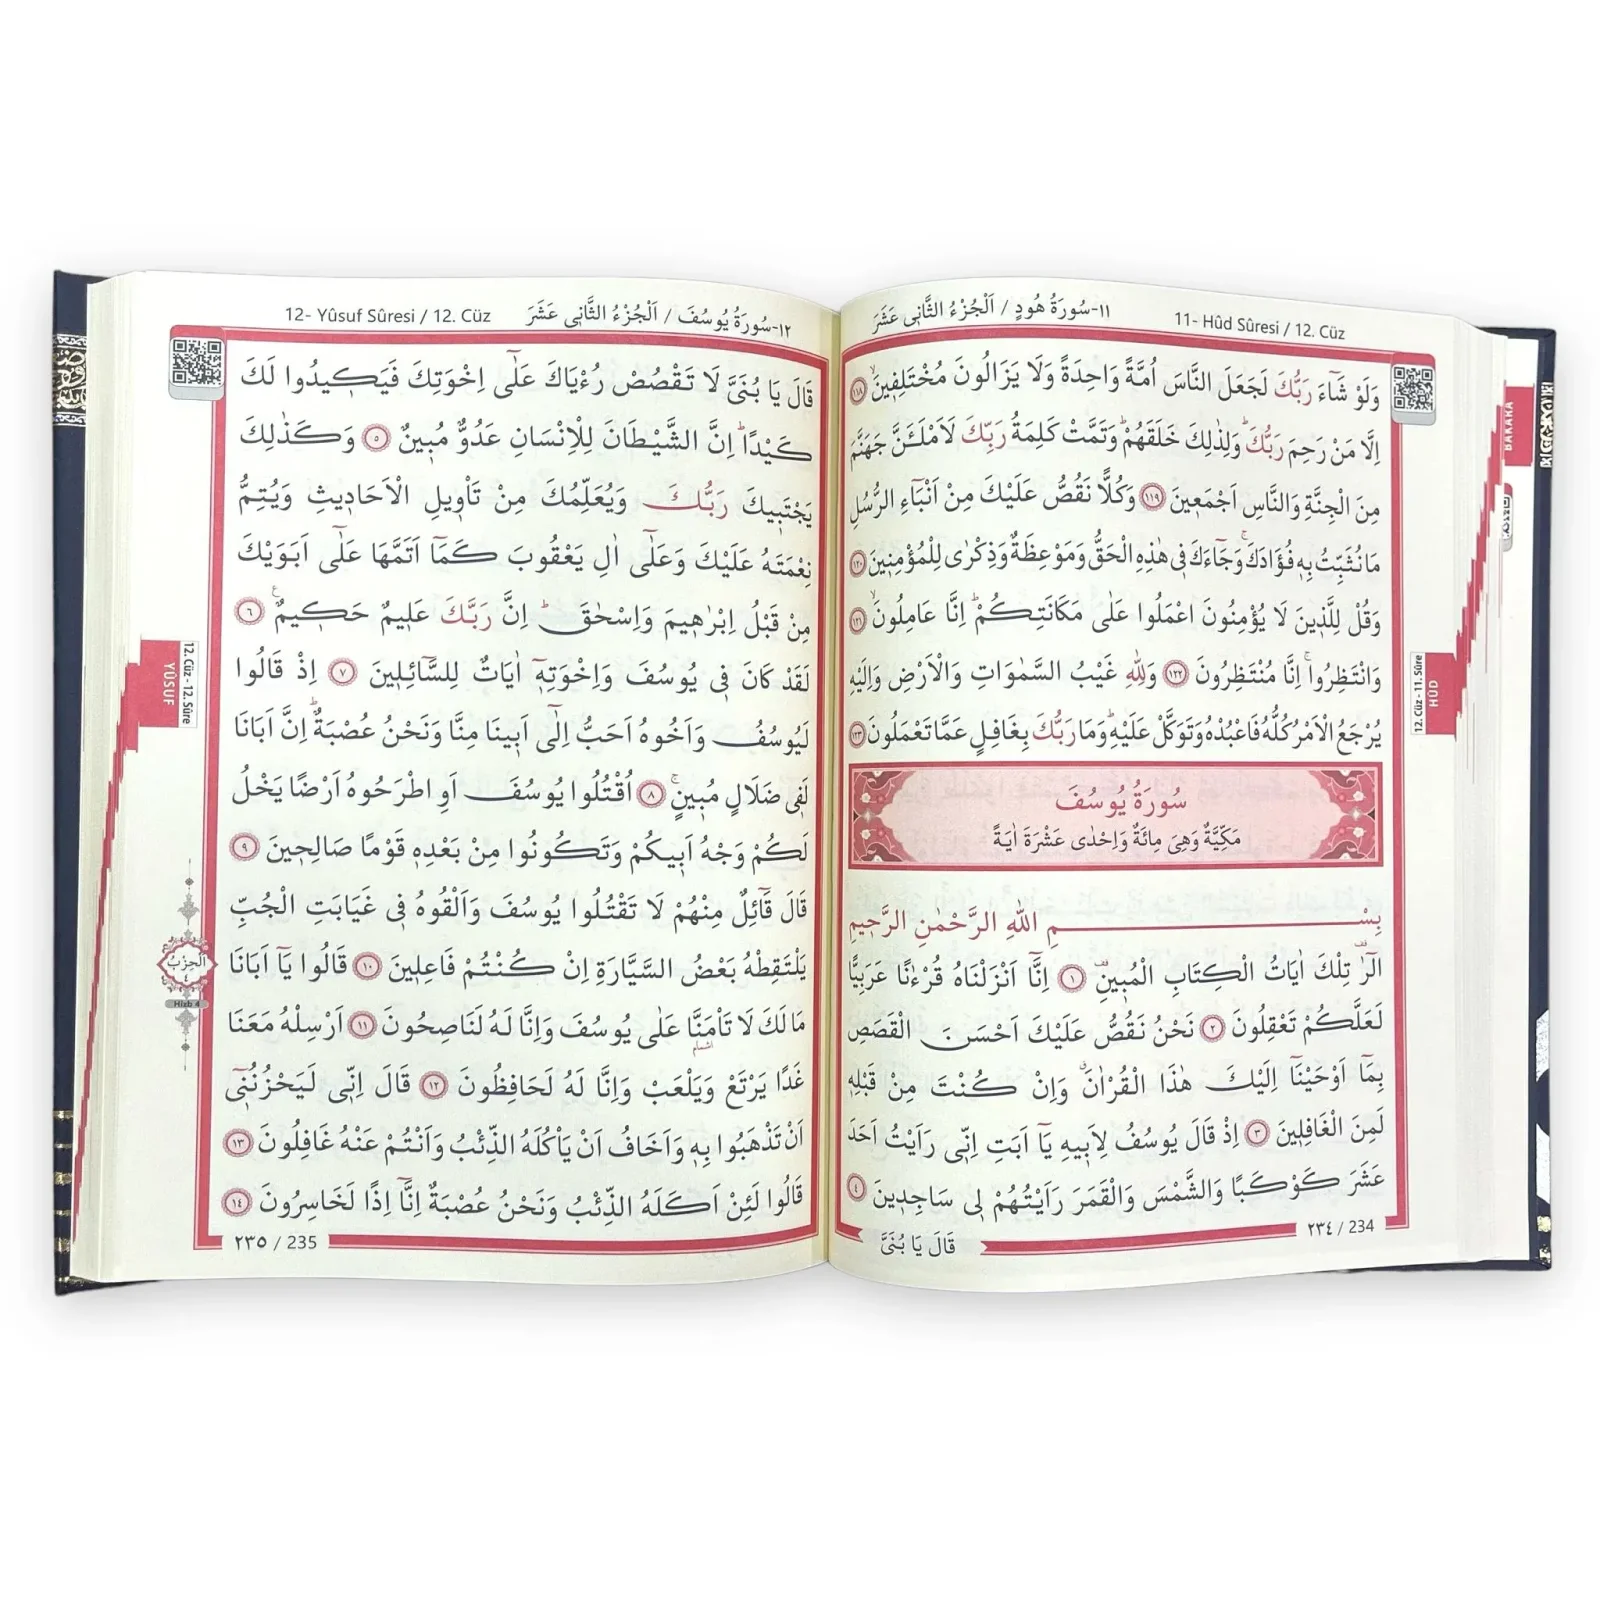 11- Hûd Sûresi / 12. Cüz
١١-سُورَةُ هُودٍ / اَلْجُزْءُ الثَّانٖى عَشَرَ
وَلَوْ شَٓاءَ رَبُّكَ لَجَعَلَ النَّاسَ اُمَّةً وَاحِدَةً وَلَا يَزَالُونَ مُخْتَلِفٖينَۙ ﴿١١٨﴾
اِلَّا مَنْ رَحِمَ رَبُّكَۜ وَلِذٰلِكَ خَلَقَهُمْۜ وَتَمَّتْ كَلِمَةُ رَبِّكَ لَاَمْلَـَٔنَّ جَهَنَّمَ
مِنَ الْجِنَّةِ وَالنَّاسِ اَجْمَعٖينَ ﴿١١٩﴾ وَكُلًّا نَقُصُّ عَلَيْكَ مِنْ اَنْبَٓاءِ الرُّسُلِ
مَا نُثَبِّتُ بِهٖ فُؤٰادَكَۚ وَجَٓاءَكَ فٖى هٰذِهِ الْحَقُّ وَمَوْعِظَةٌ وَذِكْرٰى لِلْمُؤْمِنٖينَ ﴿١٢٠﴾
وَقُلْ لِلَّذٖينَ لَا يُؤْمِنُونَ اعْمَلُوا عَلٰى مَكَانَتِكُمْۜ اِنَّا عَامِلُونَۙ ﴿١٢١﴾
وَانْتَظِرُواۚ اِنَّا مُنْتَظِرُونَ ﴿١٢٢﴾ وَلِلّٰهِ غَيْبُ السَّمٰوَاتِ وَالْاَرْضِ وَاِلَيْهِ
يُرْجَعُ الْاَمْرُ كُلُّهُ فَاعْبُدْهُ وَتَوَكَّلْ عَلَيْهِۜ وَمَا رَبُّكَ بِغَافِلٍ عَمَّا تَعْمَلُونَ ﴿١٢٣﴾
سُورَةُ يُوسُفَ
مَكِّيَّةٌ وَهِىَ مِائَةٌ وَاِحْدٰى عَشْرَةَ اٰيَةً
بِسْمِ اللّٰهِ الرَّحْمٰنِ الرَّحٖيمِ
الٓرٰ۠ تِلْكَ اٰيَاتُ الْكِتَابِ الْمُبٖينِ۠ ﴿١﴾ اِنَّٓا اَنْزَلْنَاهُ قُرْءٰنًا عَرَبِيًّا
لَعَلَّكُمْ تَعْقِلُونَ ﴿٢﴾ نَحْنُ نَقُصُّ عَلَيْكَ اَحْسَنَ الْقَصَصِ
بِمَٓا اَوْحَيْنَٓا اِلَيْكَ هٰذَا الْقُرْاٰنَۗ وَاِنْ كُنْتَ مِنْ قَبْلِهٖ
لَمِنَ الْغَافِلٖينَ ﴿٣﴾ اِذْ قَالَ يُوسُفُ لِاَبٖيهِ يَٓا اَبَتِ اِنّٖى رَاَيْتُ اَحَدَ
عَشَرَ كَوْكَبًا وَالشَّمْسَ وَالْقَمَرَ رَاَيْتُهُمْ لٖى سَاجِدٖينَ ﴿٤﴾
٢٣٤ / 234
قَالَ يَا بُنَىَّ
BAKARA
12. Cüz - 11. Sûre
HÛD
12- Yûsuf Sûresi / 12. Cüz
١٢-سُورَةُ يُوسُفَ / اَلْجُزْءُ الثَّانٖى عَشَرَ
قَالَ يَا بُنَىَّ لَا تَقْصُصْ رُءْيَاكَ عَلٰٓى اِخْوَتِكَ فَيَكٖيدُوا لَكَ
كَيْدًاۜ اِنَّ الشَّيْطَانَ لِلْاِنْسَانِ عَدُوٌّ مُبٖينٌ ﴿٥﴾ وَكَذٰلِكَ
يَجْتَبٖيكَ رَبُّكَ وَيُعَلِّمُكَ مِنْ تَاْوٖيلِ الْاَحَادٖيثِ وَيُتِمُّ
نِعْمَتَهُ عَلَيْكَ وَعَلٰٓى اٰلِ يَعْقُوبَ كَمَٓا اَتَمَّهَا عَلٰٓى اَبَوَيْكَ
مِنْ قَبْلُ اِبْرٰهٖيمَ وَاِسْحٰقَۜ اِنَّ رَبَّكَ عَلٖيمٌ حَكٖيمٌ ﴿٦﴾
لَقَدْ كَانَ فٖى يُوسُفَ وَاِخْوَتِهٖٓ اٰيَاتٌ لِلسَّٓائِلٖينَ ﴿٧﴾ اِذْ قَالُوا
لَيُوسُفُ وَاَخُوهُ اَحَبُّ اِلٰٓى اَبٖينَا مِنَّا وَنَحْنُ عُصْبَةٌۜ اِنَّ اَبَانَا
لَفٖى ضَلَالٍ مُبٖينٍۚ ﴿٨﴾ اُقْتُلُوا يُوسُفَ اَوِ اطْرَحُوهُ اَرْضًا يَخْلُ
لَكُمْ وَجْهُ اَبٖيكُمْ وَتَكُونُوا مِنْ بَعْدِهٖ قَوْمًا صَالِحٖينَ ﴿٩﴾
قَالَ قَٓائِلٌ مِنْهُمْ لَا تَقْتُلُوا يُوسُفَ وَاَلْقُوهُ فٖى غَيَابَتِ الْجُبِّ
يَلْتَقِطْهُ بَعْضُ السَّيَّارَةِ اِنْ كُنْتُمْ فَاعِلٖينَ ﴿١٠﴾ قَالُوا يَٓا اَبَانَا
مَا لَكَ لَا تَاْمَنَّا عَلٰى يُوسُفَ وَاِنَّا لَهُ لَنَاصِحُونَ ﴿١١﴾ اَرْسِلْهُ مَعَنَا
غَدًا يَرْتَعْ وَيَلْعَبْ وَاِنَّا لَهُ لَحَافِظُونَ ﴿١٢﴾ قَالَ اِنّٖى لَيَحْزُنُنٖٓى
اَنْ تَذْهَبُوا بِهٖ وَاَخَافُ اَنْ يَاْكُلَهُ الذِّئْبُ وَاَنْتُمْ عَنْهُ غَافِلُونَ ﴿١٣﴾
قَالُوا لَئِنْ اَكَلَهُ الذِّئْبُ وَنَحْنُ عُصْبَةٌ اِنَّٓا اِذًا لَخَاسِرُونَ ﴿١٤﴾
٢٣٥ / 235
12. Cüz - 12. Sûre
YÛSUF
اَلْحِزْبُ
٤
Hizb 4